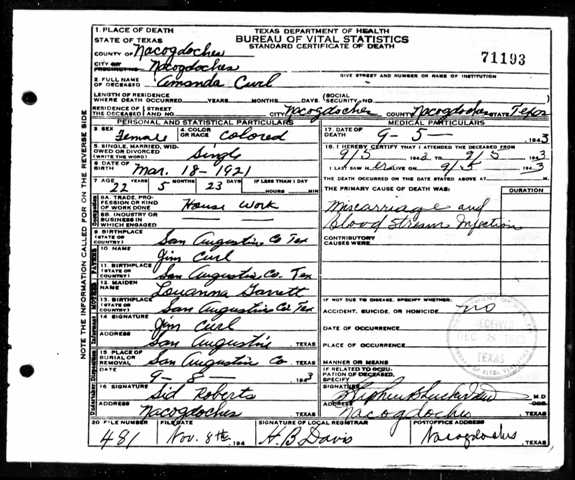 TEXAS DEPARTMENT OF HEALTH
BUREAU OF VITAL STATISTICS
STANDARD CERTIFICATE OF DEATH
71193
1. PLACE OF DEATH
STATE OF TEXAS
COUNTY OF Nacogdoches
CITY OR PRECINCT NO. Nacogdoches
GIVE STREET AND NUMBER OR NAME OF INSTITUTION
2. FULL NAME OF DECEASED Amanda Curl
LENGTH OF RESIDENCE WHERE DEATH OCCURRED YEARS MONTHS DAYS (SOCIAL SECURITY NO.
RESIDENCE OF THE DECEASED (STREET AND NO. CITY Nacogdoches COUNTY Nacogdoches STATE Texas
PERSONAL AND STATISTICAL PARTICULARS
3. SEX Female 4. COLOR OR RACE Colored
5. SINGLE, MARRIED, WIDOWED OR DIVORCED (WRITE THE WORD) Single
6. DATE OF BIRTH Mar. 18 - 1921
7. AGE 22 YEARS 5 MONTHS 23 DAYS IF LESS THAN 1 DAY HOURS MIN
8A. TRADE, PROFESSION OR KIND OF WORK DONE House Work
8B. INDUSTRY OR BUSINESS IN WHICH ENGAGED
9. BIRTHPLACE (STATE OR COUNTRY) San Augustine Co Tex
10. NAME Jim Curl
11. BIRTHPLACE (STATE OR COUNTRY) San Augustine Co. Tex
12. MAIDEN NAME Louanna Garrett
13. BIRTHPLACE (STATE OR COUNTRY) San Augustine Co Tex
14. SIGNATURE Jim Curl
ADDRESS San Augustine TEXAS
15. PLACE OF BURIAL OR REMOVAL San Augustine Co TEXAS
DATE 9 - 8 1943
16. SIGNATURE Sid Roberts
ADDRESS Nacogdoches TEXAS
MEDICAL PARTICULARS
17. DATE OF DEATH 9 - 5 - 1943
18. I HEREBY CERTIFY THAT I ATTENDED THE DECEASED FROM
9/5 1943 TO 9/5 1943
I LAST SAW H er ALIVE ON 9/5 1943
THE DEATH OCCURRED ON THE DATE STATED ABOVE AT M.
THE PRIMARY CAUSE OF DEATH WAS: DURATION
Miscarriage and
Blood Stream Infection
CONTRIBUTORY CAUSES WERE:
IF NOT DUE TO DISEASE, SPECIFY WHETHER:
ACCIDENT, SUICIDE, OR HOMICIDE no
DATE OF OCCURRENCE
PLACE OF OCCURRENCE
MANNER OR MEANS
IF RELATED TO OCCUPATION OF DECEASED, SPECIFY
SIGNATURE M.D.
ADDRESS Nacogdoches TEXAS
20. FILE NUMBER 481
FILE DATE Nov. 8th, 194
SIGNATURE OF LOCAL REGISTRAR H B Davis
POSTOFFICE ADDRESS Nacogdoches, TEXAS
NOTE THE INFORMATION CALLED FOR ON THE REVERSE SIDE
TEXAS